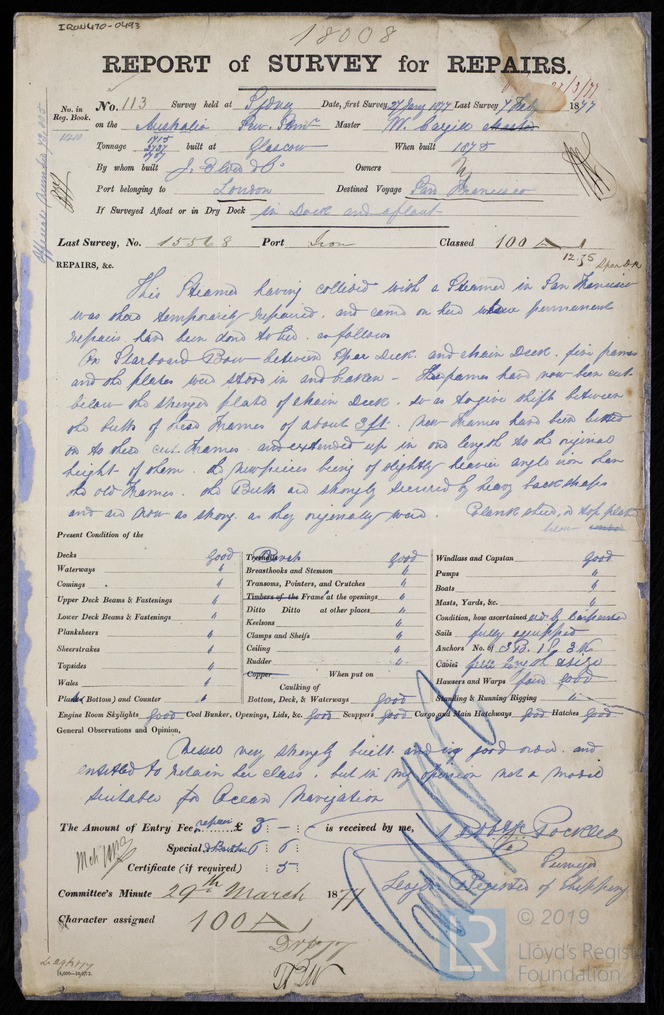 IRON470-0493
18008
REPORT of SURVEY for REPAIRS.
No. in Reg. Book.
No. 113 Survey held at Sydney Date, first Survey 27 Jany 1877 Last Survey 7 Feby 1877
on the Australia Scw. Master W. Cargill
Tonnage 2737 built at Glascow When built 1875
By whom built J. Elder & Co Owners
Port belonging to London Destined Voyage San Francisco
If Surveyed Afloat or in Dry Dock in Dock and afloat
Last Survey, No. 15568 Port Iron Classed 100 A 1
12.75 Spar Dk
REPAIRS, &c.
This Steamer having collided with a Steamer in San Francisco
was there temporarily repaired, and came on here where permanent
repairs have been done to her as follows
On Starboard Bow between Spar Deck and Main Deck. five frames
and the plates were stove in and broken – The frames have now been cut
below the stringer plate of Main Deck. so as to give shift between
the butts of these Frames of about 3 ft. New Frames have been butted
on to these cut Frames and extended up in one length to the original
height of them. the new pieces being of slightly heavier angle iron than
the old Frames. the Butts are strongly secured by heavy back straps
and are now as strong as they originally were.
Present Condition of the
Decks good
Waterways "
Comings "
Upper Deck Beams & Fastenings "
Lower Deck Beams & Fastenings "
Planksheers "
Sheerstrakes "
Topsides "
Wales "
Plank (Bottom) and Counter "
Treenails good
Breasthooks and Stemson "
Transoms, Pointers, and Crutches "
Timbers of the Frame at the openings "
Ditto Ditto at other places "
Keelsons "
Clamps and Shelfs "
Ceiling "
Rudder "
Copper When put on
Caulking of
Bottom, Deck, & Waterways good
Windlass and Capstan good
Pumps "
Boats "
Masts, Yards, &c. "
Condition, how ascertained
Sails fully equipped
Anchors No. of 3 B. 1 S. 3 K
Cables full length & size
Hawsers and Warps good
Standing & Running Rigging "
Engine Room Skylights good Coal Bunker, Openings, Lids, &c. good Scuppers good Cargo and Main Hatchways good Hatches good
General Observations and Opinion,
Vessel very strongly built and in good order. and
entitled to retain her class, but in my opinion not a model
suitable for Ocean Navigation
The Amount of Entry Fee, repair £ 3 : – : is received by me,
Special 6 : 6 :
Certificate (if required) : 5 :
Surveyor
Register of Shipping
Committee's Minute 29th March 1877
Character assigned 100 A 1
© 2019
LR Lloyd's Register Foundation